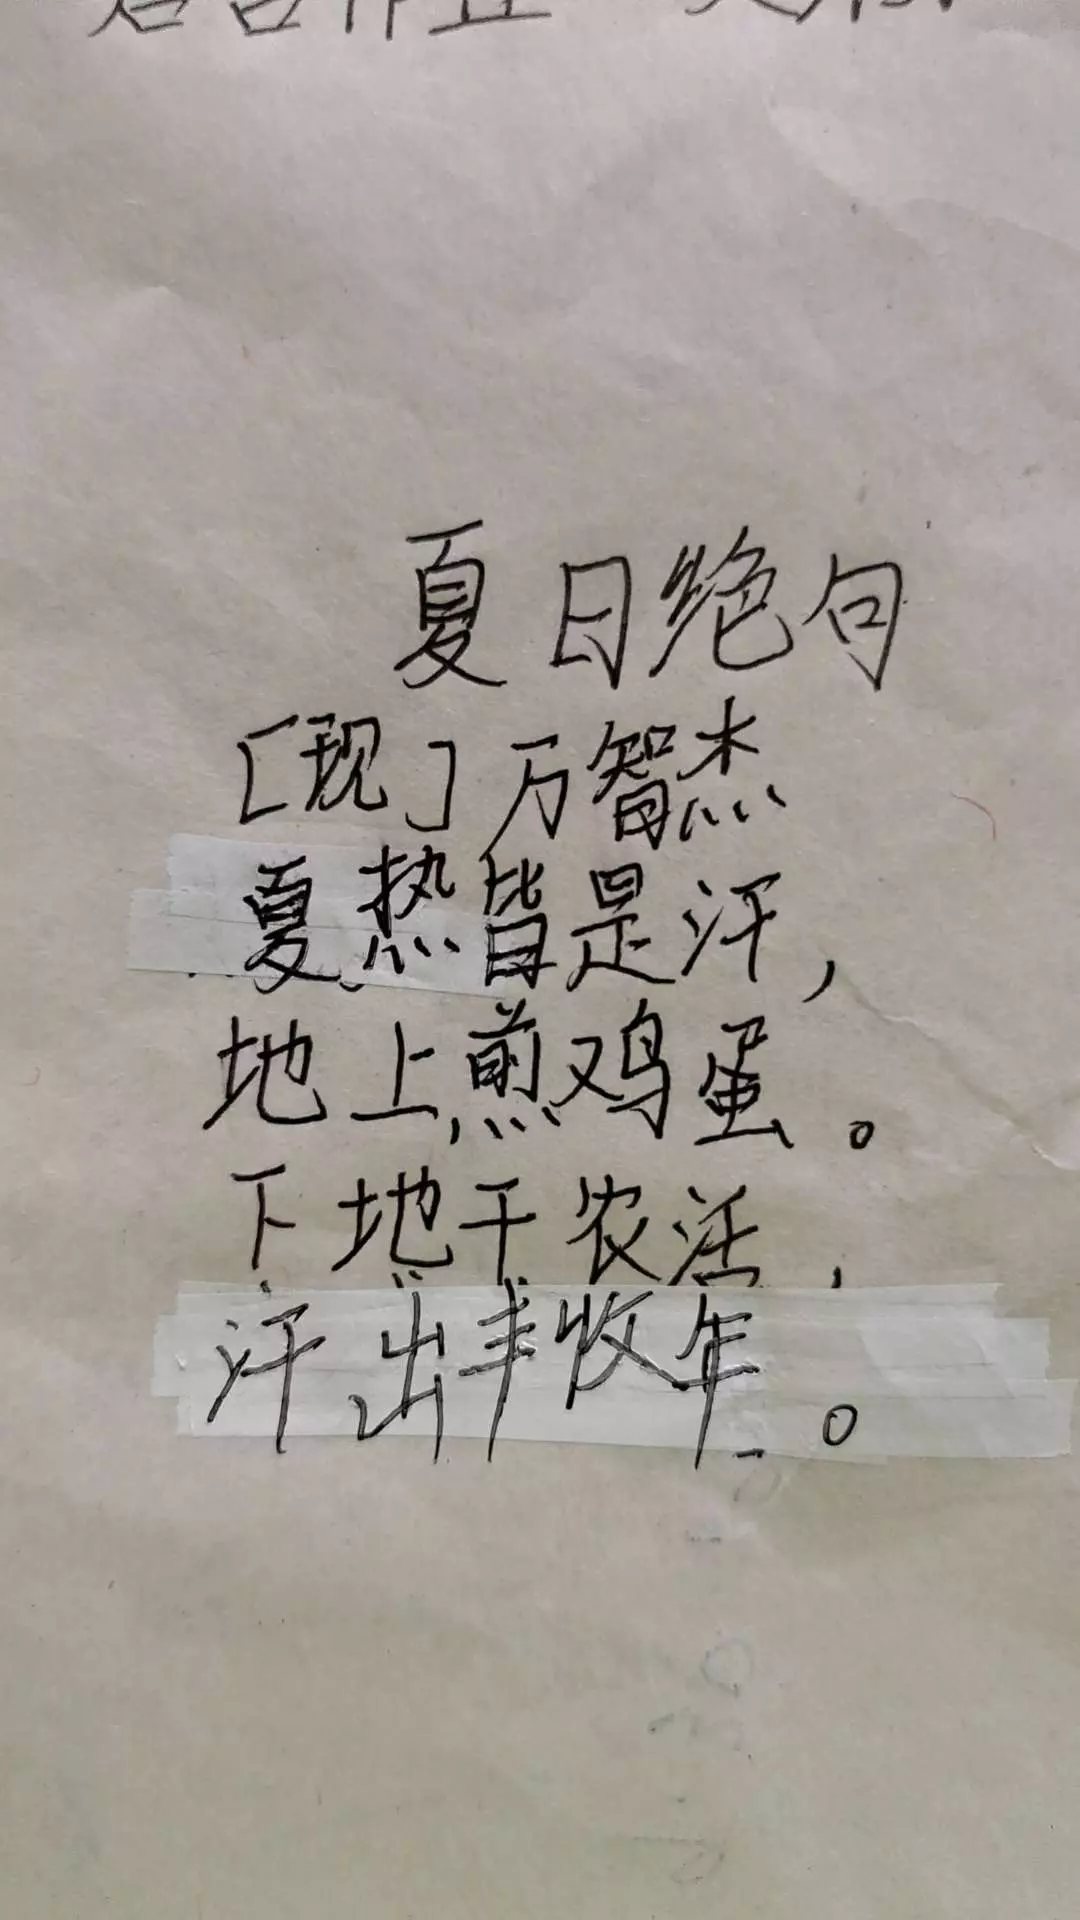 夏日绝句
[现]万智杰
夏热皆是汗,
地上煎鸡蛋。
下地干农活,
汗出丰收年。